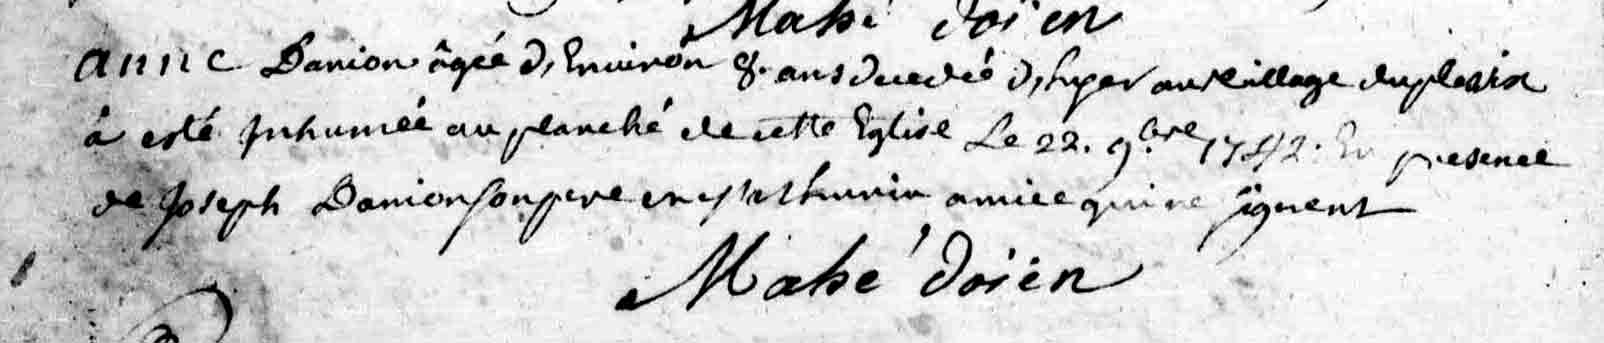 Mahé doïen
anne Danion âgée d'Environ 8. ans decedée d'hyer au village du plesix
à esté Inhumée au planché de cette Eglise Le 22. 9.bre 1742. En presence
de Joseph Danion son pere et Mathurin amice qui ne signent
Mahé doïen